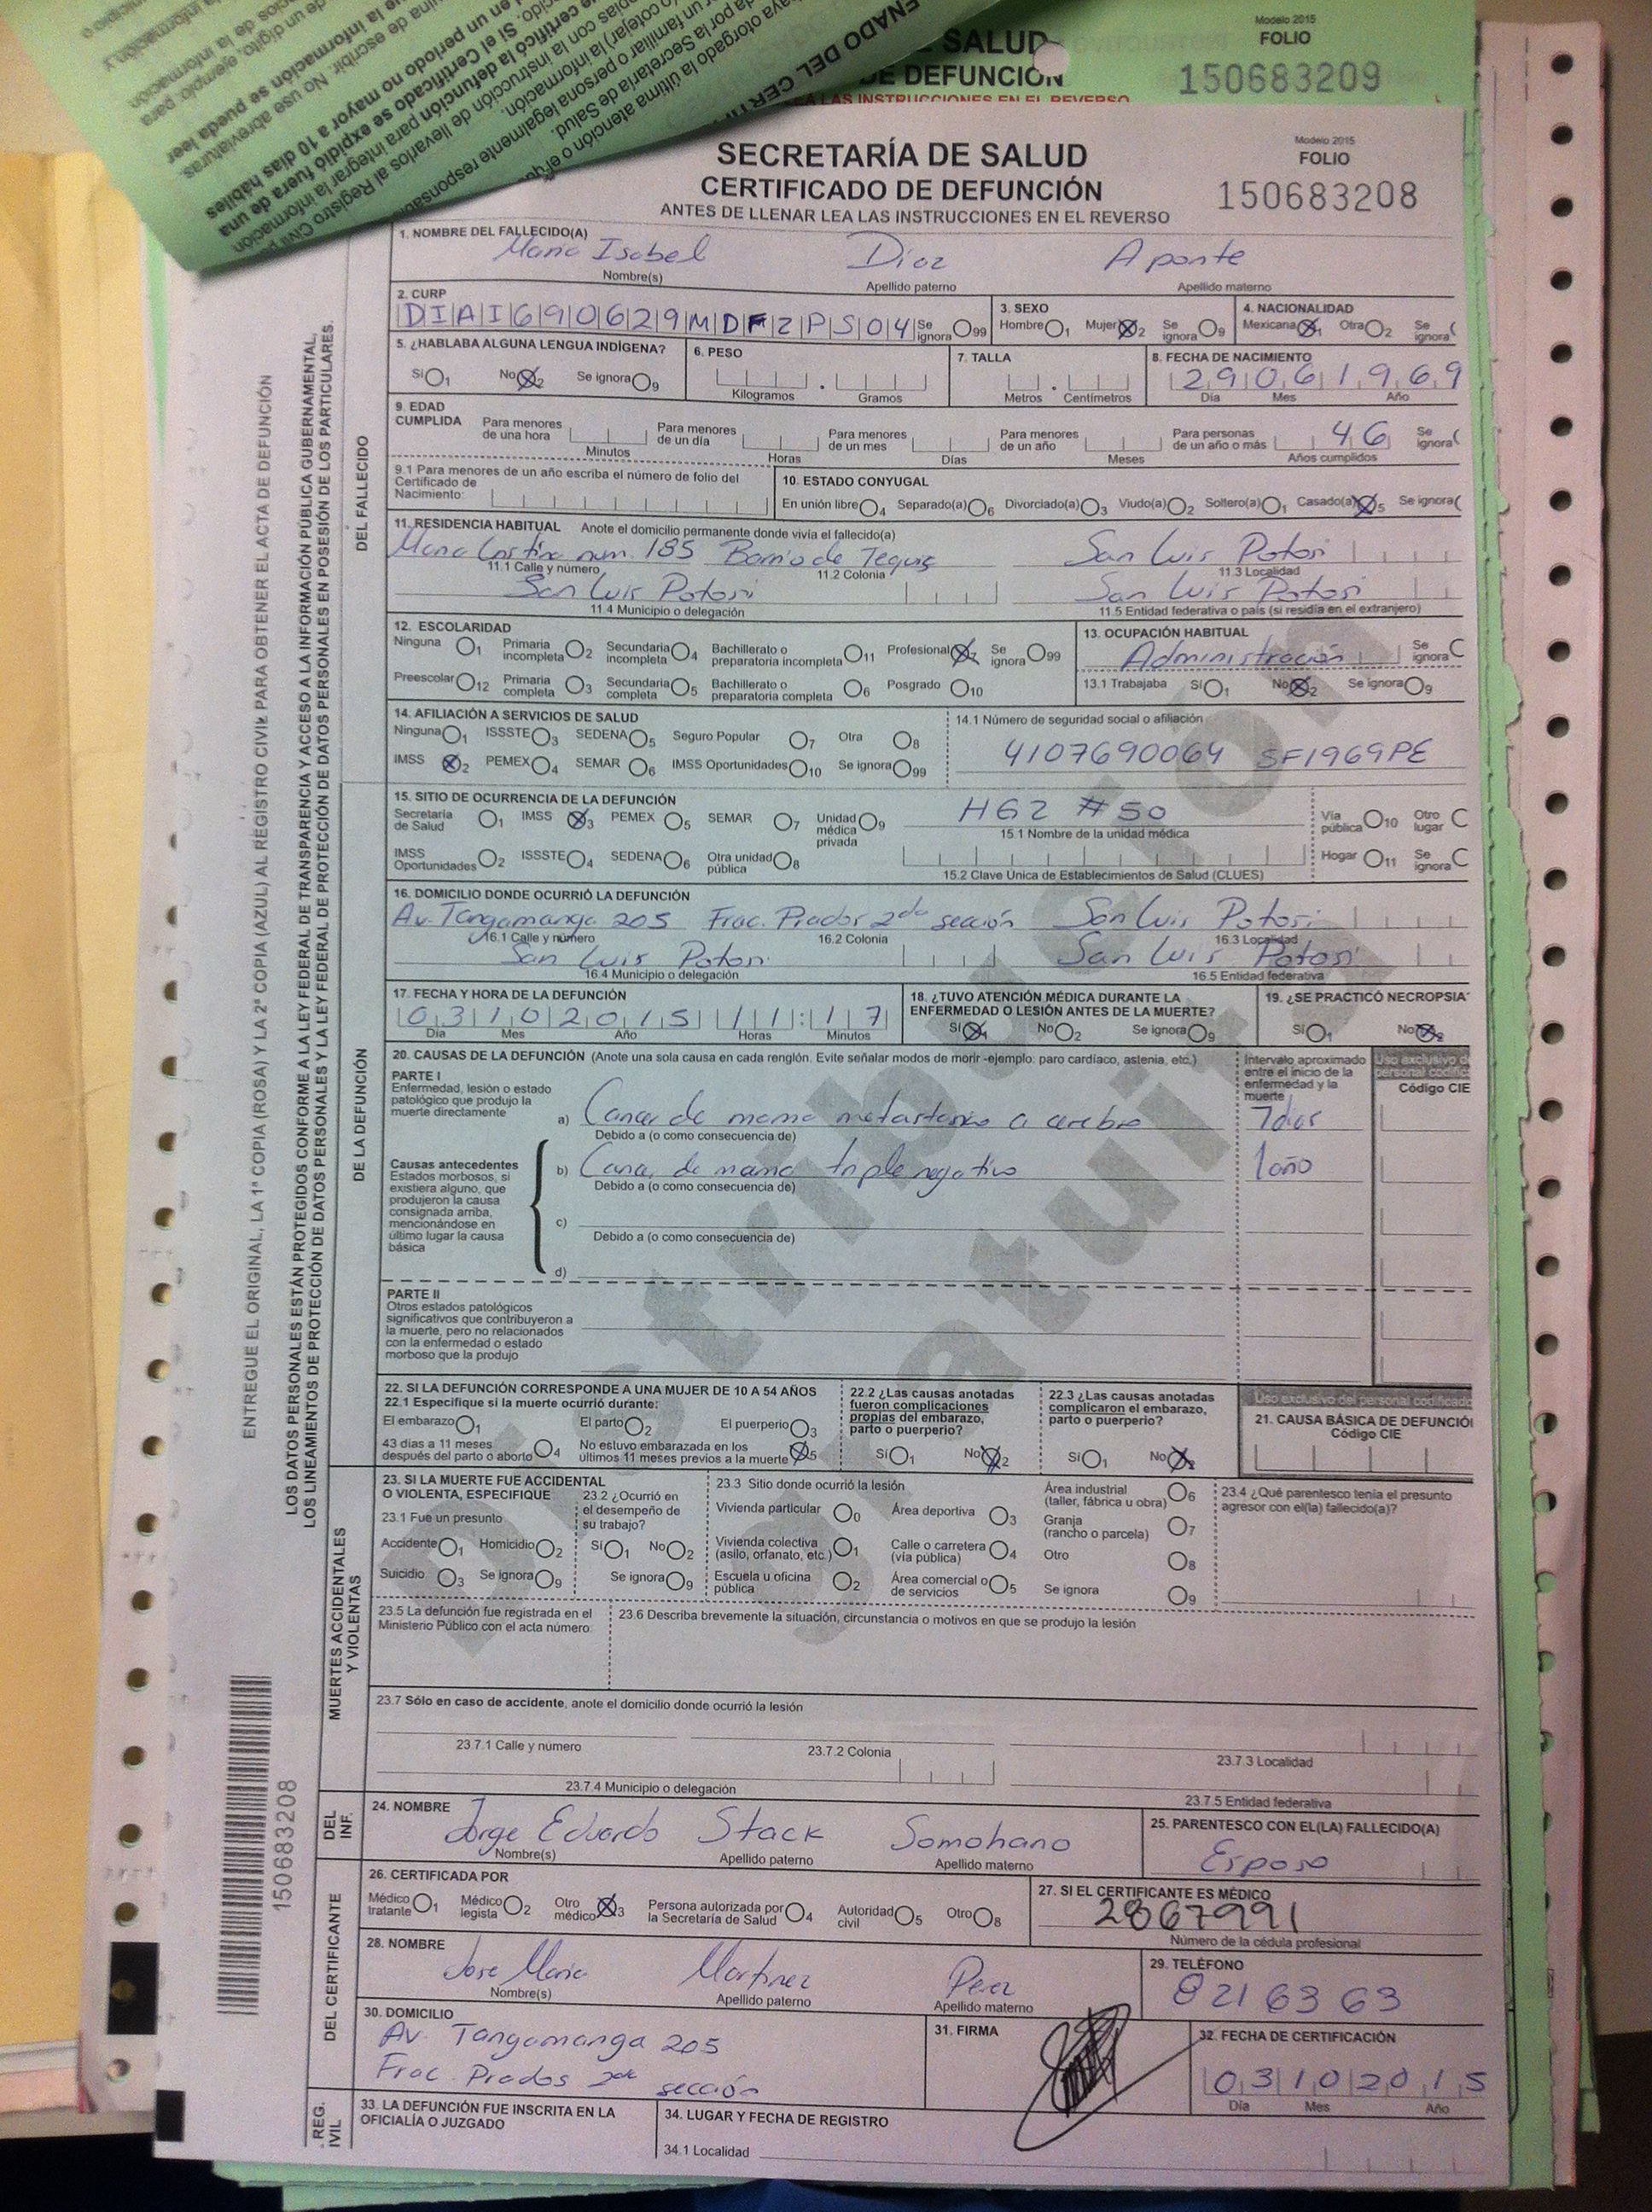 SECRETARÍA DE SALUD
CERTIFICADO DE DEFUNCIÓN
ANTES DE LLENAR LEA LAS INSTRUCCIONES EN EL REVERSO
Modelo 2015
FOLIO
150683209
Modelo 2015
FOLIO
150683208
1. NOMBRE DEL FALLECIDO(A)
Maria Isabel Diaz Aponte
Nombre(s) Apellido paterno Apellido materno
2. CURP
DIAI690629MDFZPS04 Se ignora 99
3. SEXO
Hombre 1 Mujer 2 Se ignora 9
4. NACIONALIDAD
Mexicana 1 Otra 2 Se ignora
5. ¿HABLABA ALGUNA LENGUA INDÍGENA?
Sí 1 No 2 Se ignora 9
6. PESO
Kilogramos Gramos
7. TALLA
Metros Centímetros
8. FECHA DE NACIMIENTO
29 06 1969
Día Mes Año
9. EDAD CUMPLIDA
Para menores de una hora Minutos
Para menores de un día Horas
Para menores de un mes Días
Para menores de un año Meses
Para personas de un año o más 46 Años cumplidos
Se ignora
9.1 Para menores de un año escriba el número de folio del Certificado de Nacimiento:
10. ESTADO CONYUGAL
En unión libre 4 Separado(a) 6 Divorciado(a) 3 Viudo(a) 2 Soltero(a) 1 Casado(a) 5 Se ignora
11. RESIDENCIA HABITUAL Anote el domicilio permanente donde vivía el fallecido(a)
Maria Cristina num. 185 Barrio de Tequis San Luis Potosi
11.1 Calle y número 11.2 Colonia 11.3 Localidad
San Luis Potosi San Luis Potosi
11.4 Municipio o delegación 11.5 Entidad federativa o país (si residía en el extranjero)
12. ESCOLARIDAD
Ninguna 1 Primaria incompleta 2 Secundaria incompleta 4 Bachillerato o preparatoria incompleta 11 Profesional 7 Se ignora 99
Preescolar 12 Primaria completa 3 Secundaria completa 5 Bachillerato o preparatoria completa 6 Posgrado 10
13. OCUPACIÓN HABITUAL
Administración Se ignora
13.1 Trabajaba Sí 1 No 2 Se ignora 9
14. AFILIACIÓN A SERVICIOS DE SALUD
Ninguna 1 ISSSTE 3 SEDENA 5 Seguro Popular 7 Otra 8
IMSS 2 PEMEX 4 SEMAR 6 IMSS Oportunidades 10 Se ignora 99
14.1 Número de seguridad social o afiliación
4107690064 SF1969PE
15. SITIO DE OCURRENCIA DE LA DEFUNCIÓN
Secretaría de Salud 1 IMSS 3 PEMEX 5 SEMAR 7 Unidad médica privada 9
IMSS Oportunidades 2 ISSSTE 4 SEDENA 6 Otra unidad pública 8
HGZ #50
15.1 Nombre de la unidad médica
15.2 Clave Única de Establecimientos de Salud (CLUES)
Vía pública 10 Otro lugar
Hogar 11 Se ignora
16. DOMICILIO DONDE OCURRIÓ LA DEFUNCIÓN
Av. Tangamanga 205 Frac. Prados 2da sección San Luis Potosi
16.1 Calle y número 16.2 Colonia 16.3 Localidad
San Luis Potosi San Luis Potosi
16.4 Municipio o delegación 16.5 Entidad federativa
17. FECHA Y HORA DE LA DEFUNCIÓN
03 10 2015 11:17
Día Mes Año Horas Minutos
18. ¿TUVO ATENCIÓN MÉDICA DURANTE LA ENFERMEDAD O LESIÓN ANTES DE LA MUERTE?
Sí 1 No 2 Se ignora 9
19. ¿SE PRACTICÓ NECROPSIA
Sí 1 No 2
20. CAUSAS DE LA DEFUNCIÓN (Anote una sola causa en cada renglón. Evite señalar modos de morir -ejemplo: paro cardíaco, astenia, etc.)
Intervalo aproximado entre el inicio de la enfermedad y la muerte
Código CIE
PARTE I
Enfermedad, lesión o estado patológico que produjo la muerte directamente
a) Cancer de mama metastasico a cerebro 7 dias
Debido a (o como consecuencia de)
Causas antecedentes
Estados morbosos, si existiera alguno, que produjeron la causa consignada arriba, mencionándose en último lugar la causa básica
b) Cancer de mama triple negativo 1 año
Debido a (o como consecuencia de)
c)
Debido a (o como consecuencia de)
d)
PARTE II
Otros estados patológicos significativos que contribuyeron a la muerte, pero no relacionados con la enfermedad o estado morboso que la produjo
22. SI LA DEFUNCIÓN CORRESPONDE A UNA MUJER DE 10 A 54 AÑOS
22.1 Especifique si la muerte ocurrió durante:
El embarazo 1 El parto 2 El puerperio 3
43 días a 11 meses después del parto o aborto 4 No estuvo embarazada en los últimos 11 meses previos a la muerte 5
22.2 ¿Las causas anotadas fueron complicaciones propias del embarazo, parto o puerperio?
Sí 1 No 2
22.3 ¿Las causas anotadas complicaron el embarazo, parto o puerperio?
Sí 1 No 2
21. CAUSA BÁSICA DE DEFUNCIÓ
Código CIE
23. SI LA MUERTE FUE ACCIDENTAL O VIOLENTA, ESPECIFIQUE
23.1 Fue un presunto
Accidente 1 Homicidio 2
Suicidio 3 Se ignora 9
23.2 ¿Ocurrió en el desempeño de su trabajo?
Sí 1 No 2
Se ignora 9
23.3 Sitio donde ocurrió la lesión
Vivienda particular 0 Área deportiva 3 Área industrial (taller, fábrica u obra) 6
Granja (rancho o parcela) 7
Vivienda colectiva (asilo, orfanato, etc.) 1 Calle o carretera (vía pública) 4 Otro 8
Escuela u oficina pública 2 Área comercial o de servicios 5 Se ignora 9
23.4 ¿Qué parentesco tenía el presunto agresor con el(la) fallecido(a)?
23.5 La defunción fue registrada en el Ministerio Público con el acta número:
23.6 Describa brevemente la situación, circunstancia o motivos en que se produjo la lesión
23.7 Sólo en caso de accidente, anote el domicilio donde ocurrió la lesión
23.7.1 Calle y número 23.7.2 Colonia 23.7.3 Localidad
23.7.4 Municipio o delegación 23.7.5 Entidad federativa
24. NOMBRE
Jorge Eduardo Stack Somohano
Nombre(s) Apellido paterno Apellido materno
25. PARENTESCO CON EL(LA) FALLECIDO(A)
Esposo
26. CERTIFICADA POR
Médico tratante 1 Médico legista 2 Otro médico 3 Persona autorizada por la Secretaría de Salud 4 Autoridad civil 5 Otro 8
27. SI EL CERTIFICANTE ES MÉDICO
2867991
Número de la cédula profesional
28. NOMBRE
Jose Maria Martinez Perez
Nombre(s) Apellido paterno Apellido materno
29. TELÉFONO
8216363
30. DOMICILIO
Av. Tangamanga 205
Frac. Prados 2da sección
31. FIRMA
32. FECHA DE CERTIFICACIÓN
03 10 2015
Día Mes Año
33. LA DEFUNCIÓN FUE INSCRITA EN LA OFICIALÍA O JUZGADO
34. LUGAR Y FECHA DE REGISTRO
34.1 Localidad
DEL FALLECIDO
DE LA DEFUNCIÓN
MUERTES ACCIDENTALES Y VIOLENTAS
DEL INF.
DEL CERTIFICANTE
REG. IVIL
ENTREGUE EL ORIGINAL, LA 1ª COPIA (ROSA) Y LA 2ª COPIA (AZUL) AL REGISTRO CIVIL PARA OBTENER EL ACTA DE DEFUNCIÓN
LOS DATOS PERSONALES ESTÁN PROTEGIDOS CONFORME A LA LEY FEDERAL DE TRANSPARENCIA Y ACCESO A LA INFORMACIÓN PÚBLICA GUBERNAMENTAL,
LOS LINEAMIENTOS DE PROTECCIÓN DE DATOS PERSONALES Y LA LEY FEDERAL DE PROTECCIÓN DE DATOS PERSONALES EN POSESIÓN DE LOS PARTICULARES.
150683208
Distribución gratuita